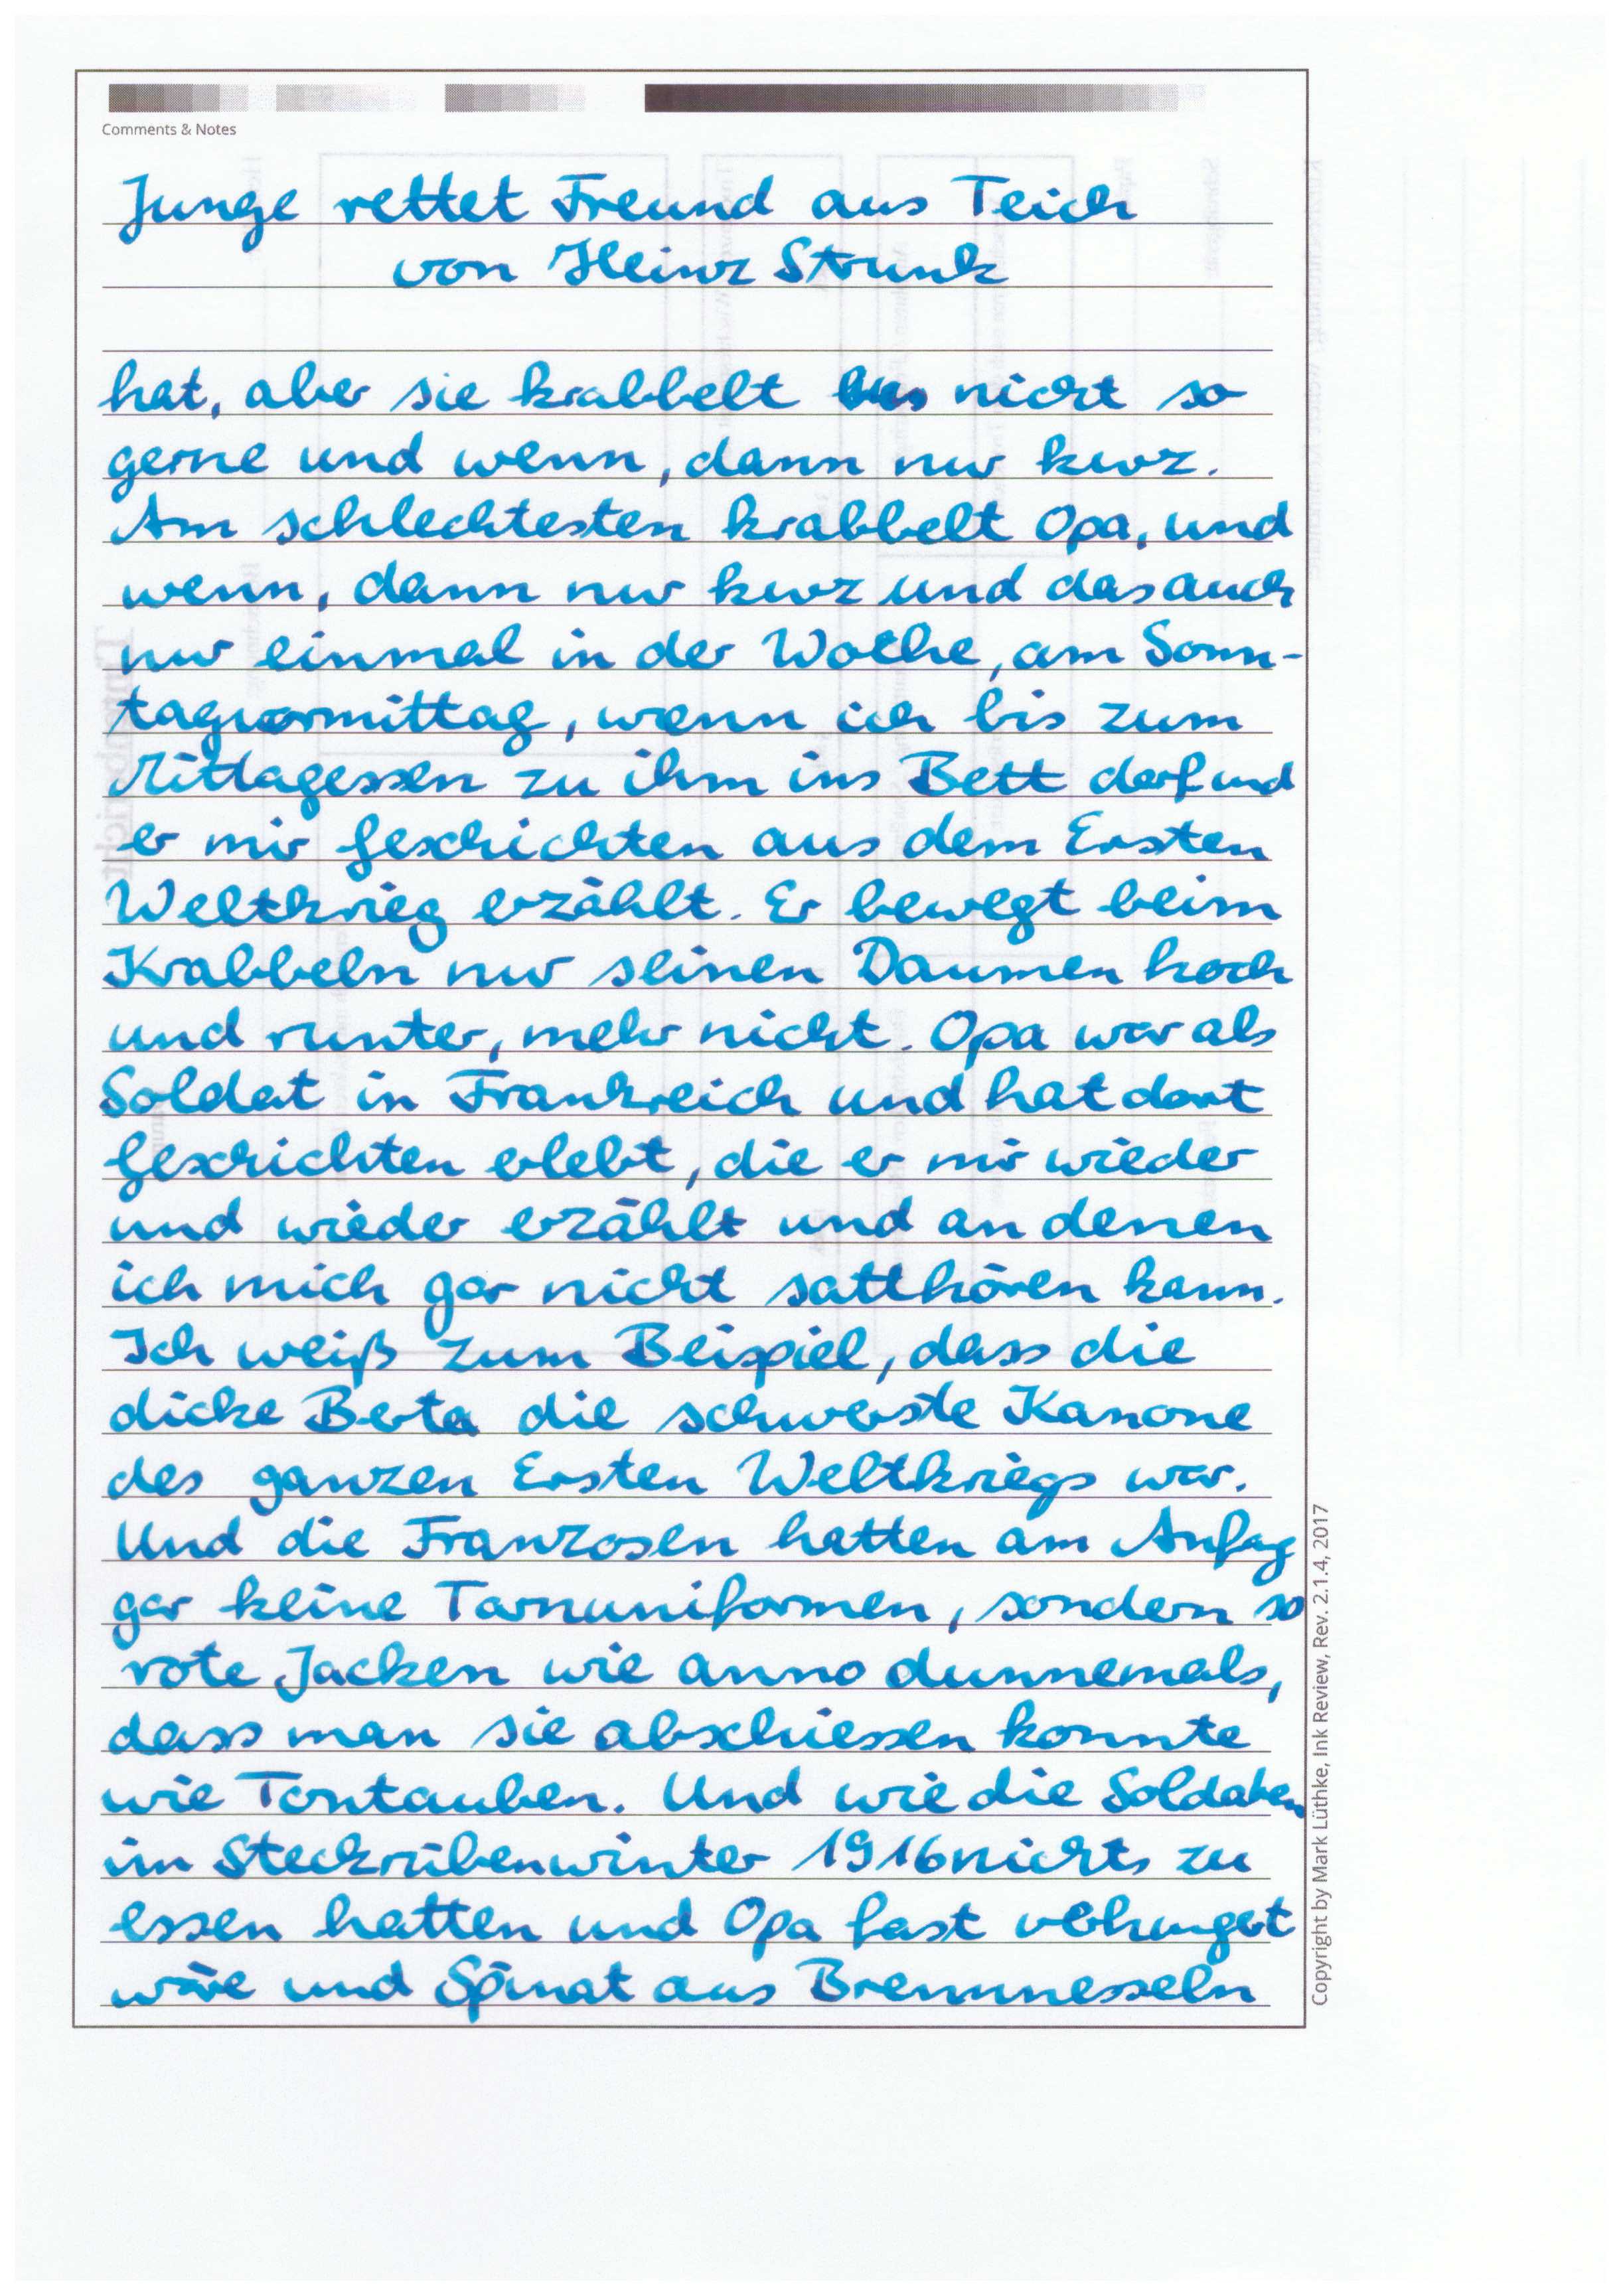 Comments & Notes
Junge rettet Freund aus Teich
von Heinz Strunk
hat, aber sie krabbelt nicht so
gerne und wenn, dann nur kurz.
Am schlechtesten krabbelt Opa, und
wenn, dann nur kurz und das auch
nur einmal in der Woche, am Sonn-
tagvormittag, wenn ich bis zum
Mittagessen zu ihm ins Bett darf und
er mir Geschichten aus dem Ersten
Weltkrieg erzählt. Er bewegt beim
Krabbeln nur seinen Daumen hoch
und runter, mehr nicht. Opa war als
Soldat in Frankreich und hat dort
Geschichten erlebt, die er mir wieder
und wieder erzählt und an denen
ich mich gar nicht satthören kann.
Ich weiß zum Beispiel, dass die
dicke Berta die schwerste Kanone
des ganzen Ersten Weltkriegs war.
Und die Franzosen hatten am Anfag
gar keine Tarnuniformen, sondern so
rote Jacken wie anno dunnemals,
dass man sie abschiessen konnte
wie Tontauben. Und wie die Soldaten
im Steckrübenwinter 1916 nichts zu
essen hatten und Opa fast verhungert
wäre und Spinat aus Brennnesseln
Copyright by Mark Lüthke, Ink Review, Rev. 2.1.4, 2017